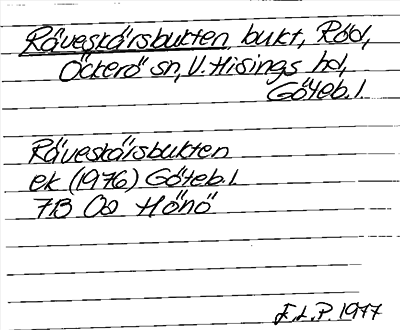 Räveskärsbukten, bukt, Röd,
Öckerö sn, V. Hisings hd,
Göteb. l.
Räveskärsbukten
ek (1976) Göteb. l
7B 0a Hönö
E.L.P. 1977